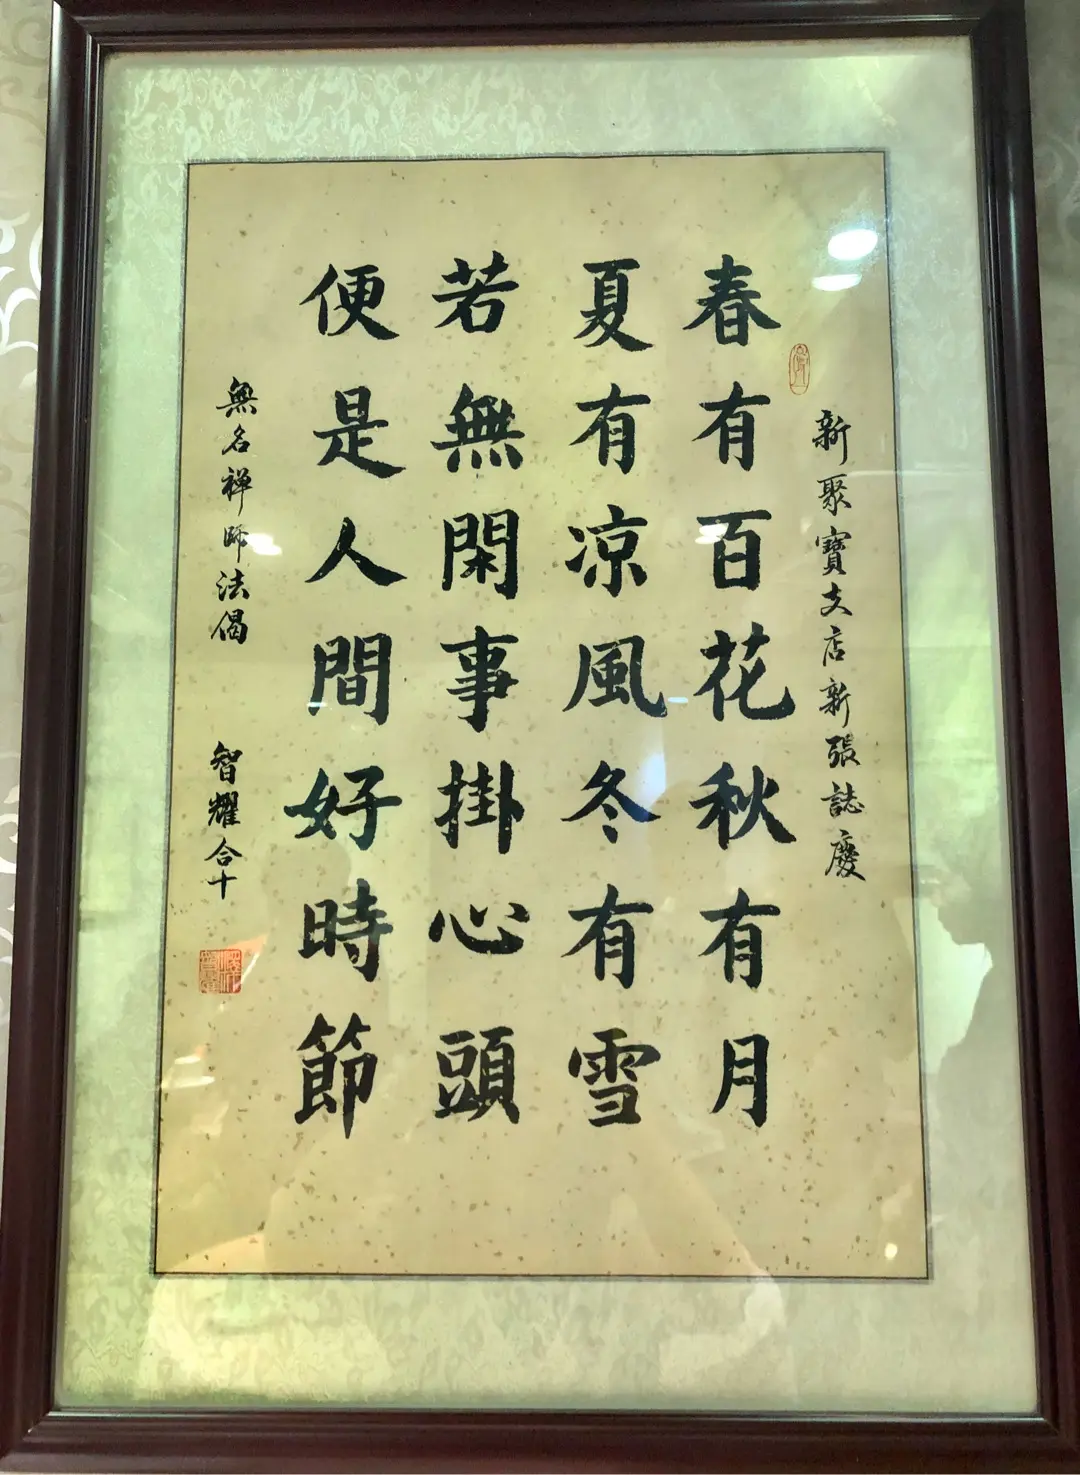 新聚寶支店新張誌慶
春有百花秋有月
夏有凉風冬有雪
若無閑事掛心頭
便是人間好時節
無名禅師法偈
智耀合十